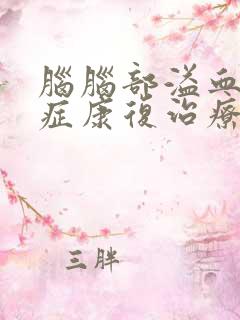 腦腦部溢血
症康復治療
三胖